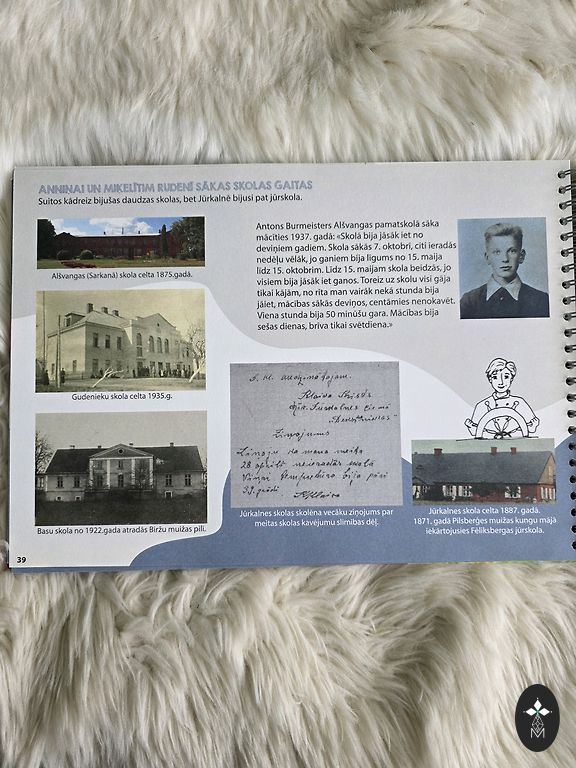 ANNIŅAI UN MIĶELĪTIM RUDENĪ SĀKAS SKOLAS GAITAS
Suitos kādreiz bijušas daudzas skolas, bet Jūrkalnē bijusi pat jūrskola.
Alšvangas (Sarkanā) skola celta 1875.gadā.
Gudenieku skola celta 1935.g.
Basu skola no 1922.gada atradās Biržu muižas pilī.
Antons Burmeisters Alšvangas pamatskolā sāka
mācīties 1937. gadā: «Skolā bija jāsāk iet no
deviņiem gadiem. Skola sākās 7. oktobrī, citi ieradās
nedēļu vēlāk, jo ganiem bija līgums no 15. maija
līdz 15. oktobrim. Līdz 15. maijam skola beidzās, jo
visiem bija jāsāk iet ganos. Toreiz uz skolu visi gāja
tikai kājām, no rīta man vairāk nekā stunda bija
jāiet, mācības sākās deviņos, centāmies nenokavēt.
Viena stunda bija 50 minūšu gara. Mācības bija
sešas dienas, brīva tikai svētdiena.»
Ziņojums
28 aprīlī
Jūrkalnes skolas skolēna vecāku ziņojums par
meitas skolas kavējumu slimības dēļ.
Jūrkalnes skola celta 1887. gadā.
1871. gadā Pilsberģes muižas kungu mājā
iekārtojusies Fēliksbergas jūrskola.
39
M